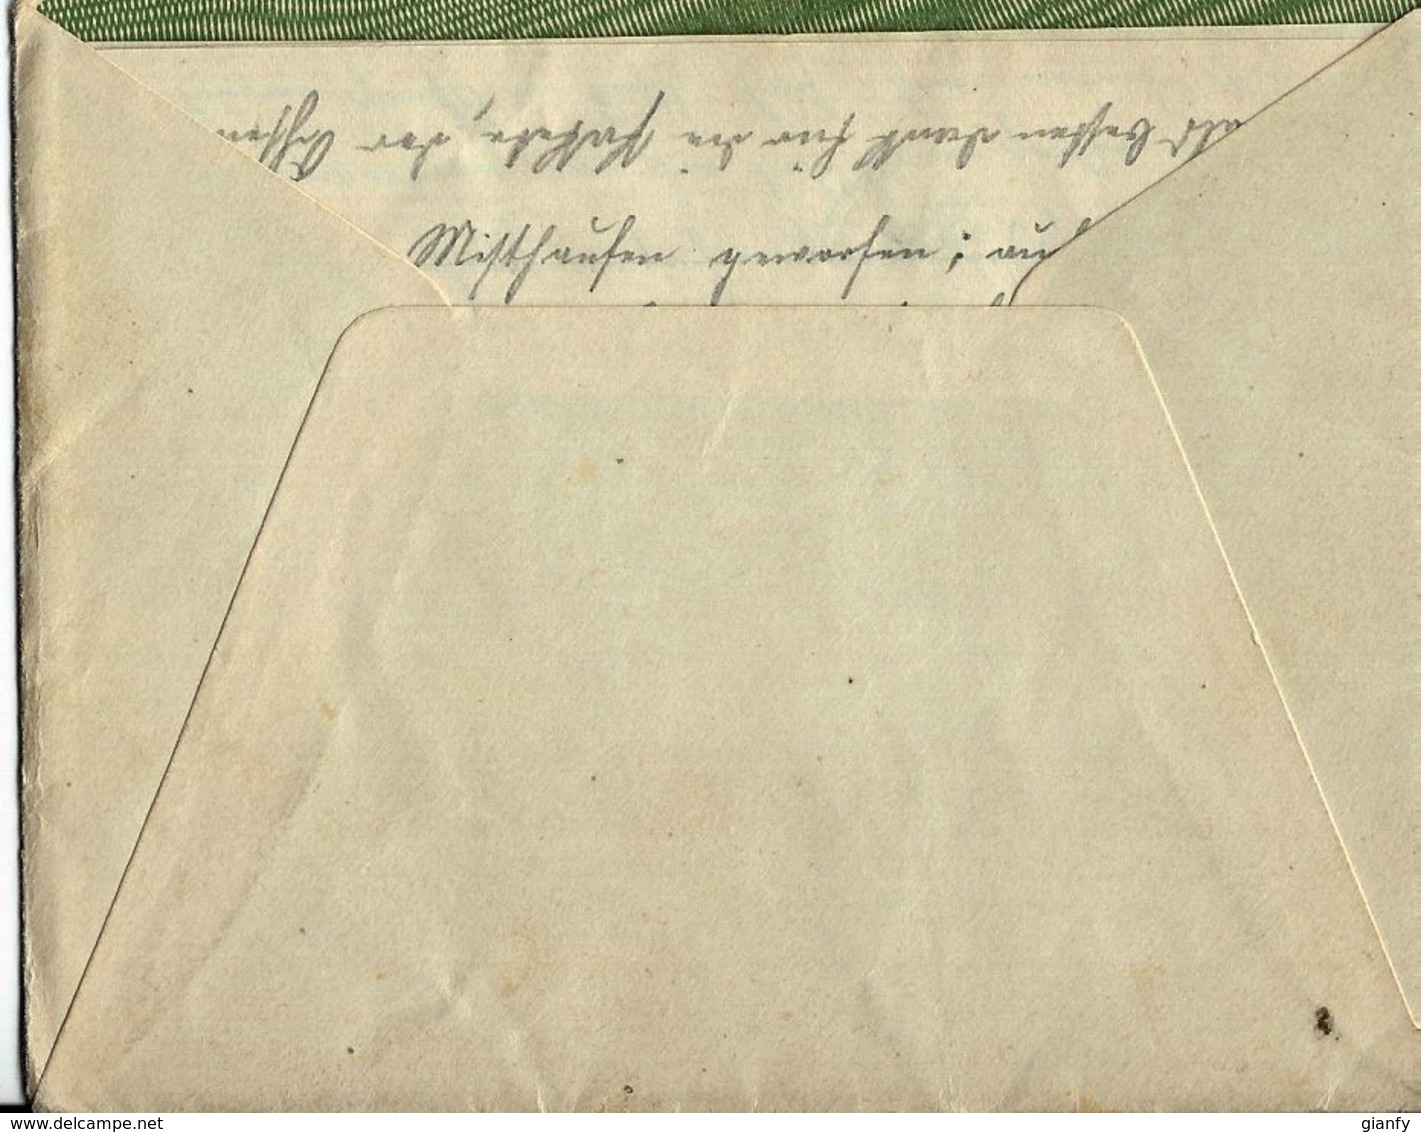 besten Dank für die Pakete, der
Misthaufen geworfen; auf
delcampe.net
gianfy